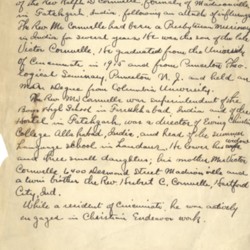 of the Rev. Ralph D. Cornuelle, formerly of Madisonville
in Fatehgarh, India, following an attack of influenza.
The Rev. Mr. Cornuelle had been a Presbyterian missionary
in India for several years. He was the son of the late
Victor Cornuelle. He graduated from the University
of Cincinnati in 1915 and from Princeton Theo-
logical Seminary, Princeton N.J. and held an
M.A. Degree from Columbia University.
The Rev Mr Cornuelle was superintendent of the
Boys High School in Farrukhabad India and of the
Hostel in Fatehgarh, was a director of Ewing Christian
College Allahabad, India, and head of the summer
language school in Landour. He leaves his wife
and three small daughters; his mother Mrs Victor
Cornuelle 6400 Desmond Street Madisonville and
a twin brother the Rev. Herbert C. Cornuelle Hartford
City, Ind.
While a resident of Cincinnati he was actively
engaged in Christian Endeavor work.